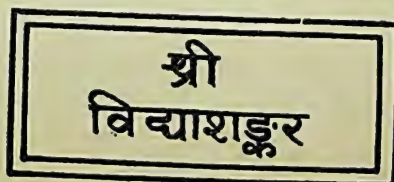 श्री
विद्याशङ्कर